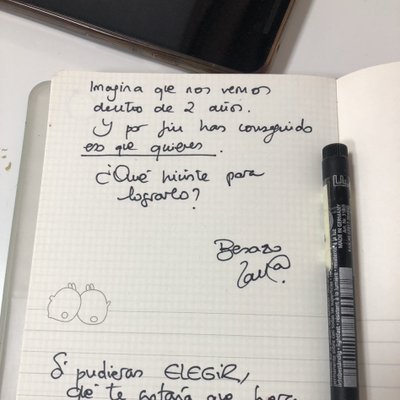 Imagina que nos vemos
dentro de 2 años.
Y por fin has conseguido
eso que quieres.
¿Qué hiciste para
lograrlo?
Besazo
Si pudieras ELEGIR,
qué te gustaría que
MADE IN GERMANY